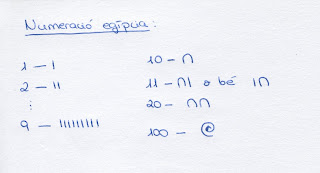 Numeració egípcia:
1 — I
2 — II
⋮
9 — IIIIIIIII
10 — ∩
11 — ∩I o bé I∩
20 — ∩∩
100 — @